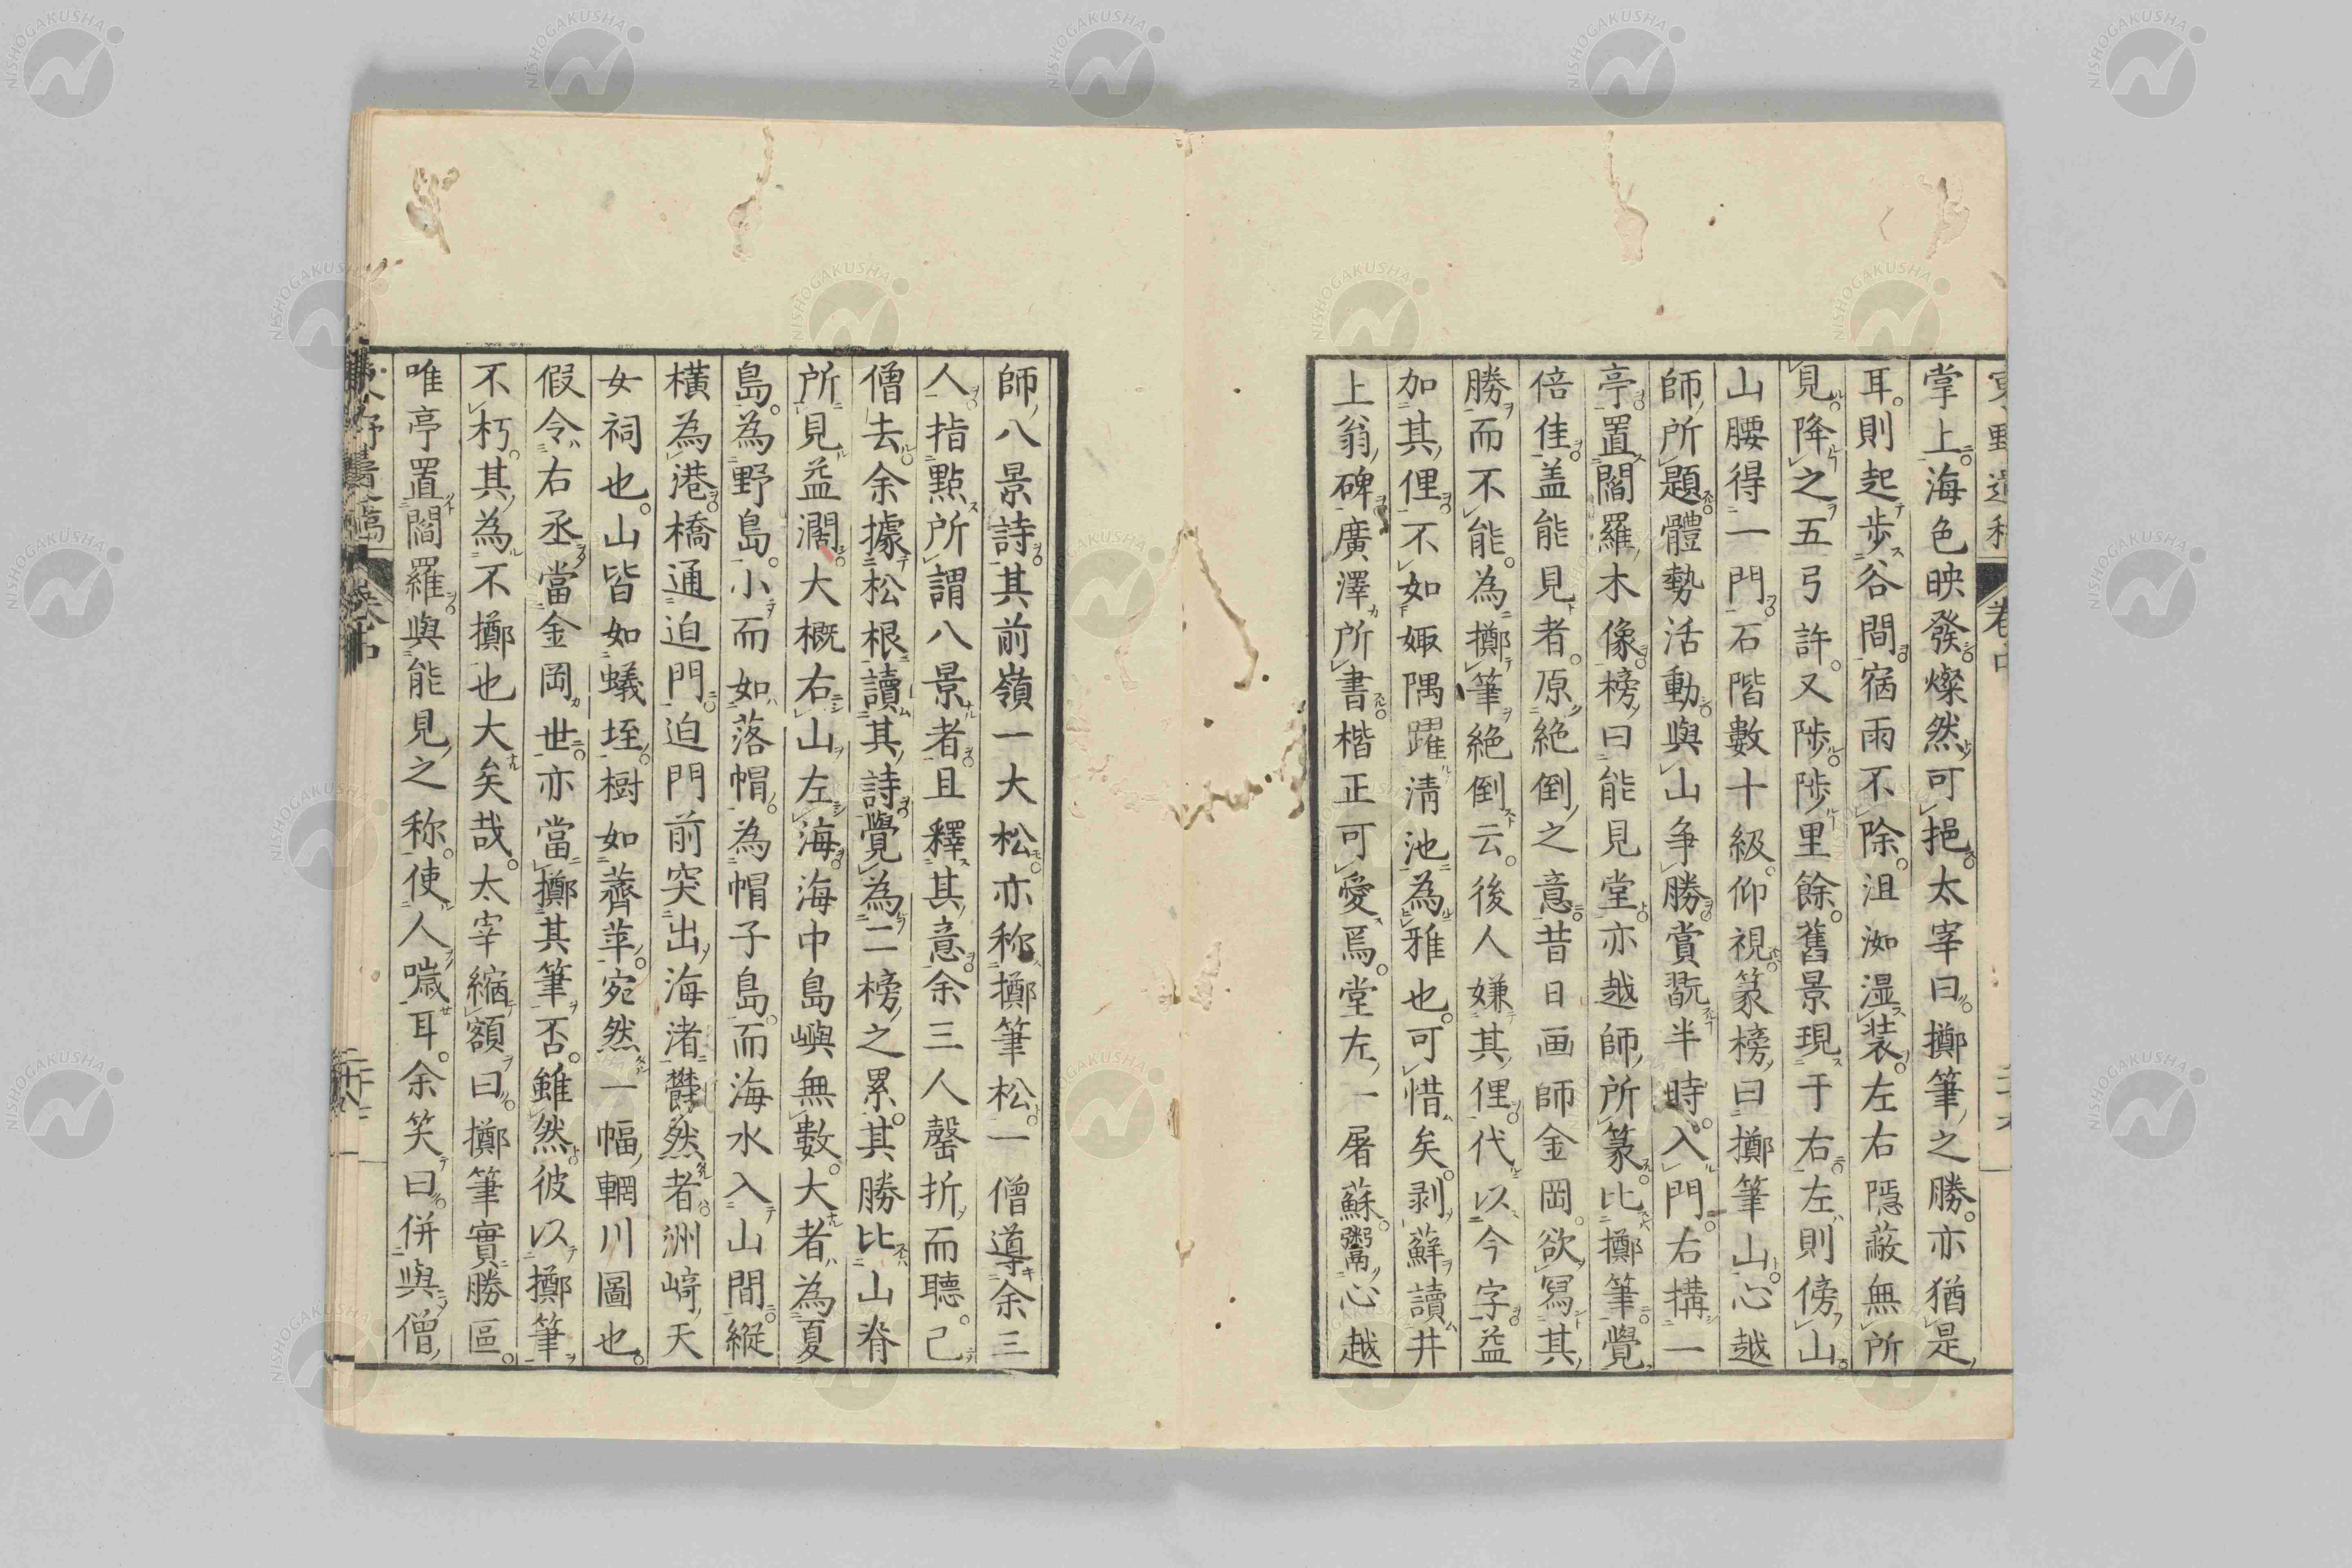 掌上海色映發燦然可挹太宰曰擲筆之勝亦猶是
耳則起歩谷間宿雨不除沮洳湿装左右隱蔽無所
見降之五弓許又陟陟里餘舊景現于右左則傍山
山腰得一門石階數十級仰視篆榜曰擲筆山心越
師所題體勢活動與山争勝賞翫半時入門右搆一
亭置閻羅木像榜曰能見堂亦越師所篆比擲筆覺
倍佳盖能見者原絶倒之意昔日画師金岡欲冩其
勝而不能為擲筆絶倒云後人嫌其俚代以今字益
加其俚不如娵隅躍清池為雅也可惜矣剥蘚讀井
上翁碑廣澤所書楷正可愛焉堂左一屠蘇鬻心越
師八景詩其前嶺一大松亦称擲筆松一僧導余三
人指點所謂八景者且釋其意余三人罄折而聽已
僧去余據松根讀其詩覺為二榜之累其勝比山脊
所見益濶大概右山左海海中島嶼無數大者為夏
島為野島小而如落帽為帽子島而海水入山間縱
橫為港橋通迫門迫門前突出海渚欝然者洲﨑天
女祠也山皆如蟻垤樹如薺苹宛然一幅輞川圖也
假令右丞當金岡世亦當擲其筆否雖然彼以擲筆
不朽其為不擲也大矣哉太宰縮額曰擲筆實勝區
唯亭置閻羅與能見之称使人噦耳余笑曰併與僧